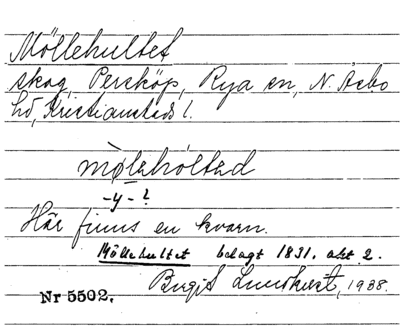 Möllehultet
skog, Persköp, Rya sn, N. Åsbo
hd, Kristianstads l.
mø̀lehòltəd
-y-?
Här finns en kvarn.
Möllehultet belagt 1831. akt 2.
Birgit Lundkvist, 1938.
Nr 5502.